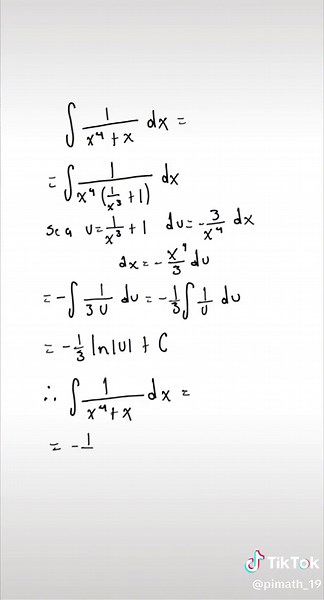 ∫ 1/(x⁴ + x) dx =
= ∫ 1/(x⁴(1/x³ + 1)) dx
Sea u = 1/x³ + 1 du = -3/x⁴ dx
dx = -x⁴/3 du
= -∫ 1/(3u) du = -1/3 ∫ 1/u du
= -1/3 ln|u| + C
∴ ∫ 1/(x⁴ + x) dx =
= -1/
TikTok
@pimath_19